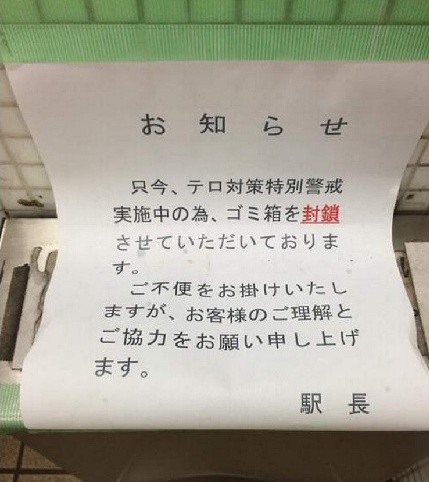 お知らせ
只今、テロ対策特別警戒
実施中の為、ゴミ箱を封鎖
させていただいておりま
す。
ご不便をお掛けいたし
ますが、お客様のご理解と
ご協力をお願い申し上げ
ます。
駅長